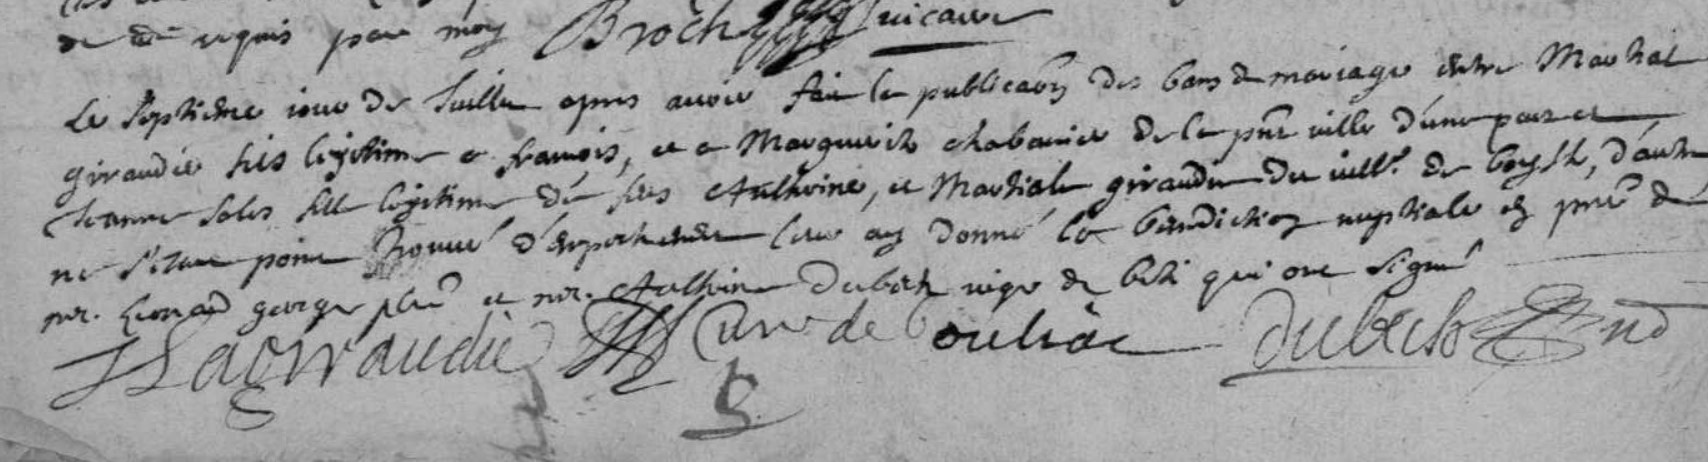 de ce requis par moy Broch vicaire
Le septieme iour de Juillet apres avoir fait la publicaon des bans de mariage entre Martial
giraudie fils legitime a francois, et a Marguerite chabanier de la pnte ville d'une part et
Jeanne fille legitime de feus Anthoine, et Martiale giraudie du vill. de d'autre
ne s'etant point trouvé d'empechement leur ay donné la benediction nuptiale en pnce de
mr. Leonard george pbre et mr. Anthoine Dubech de qui ont signé
Lagiraudie Curé de Dubech